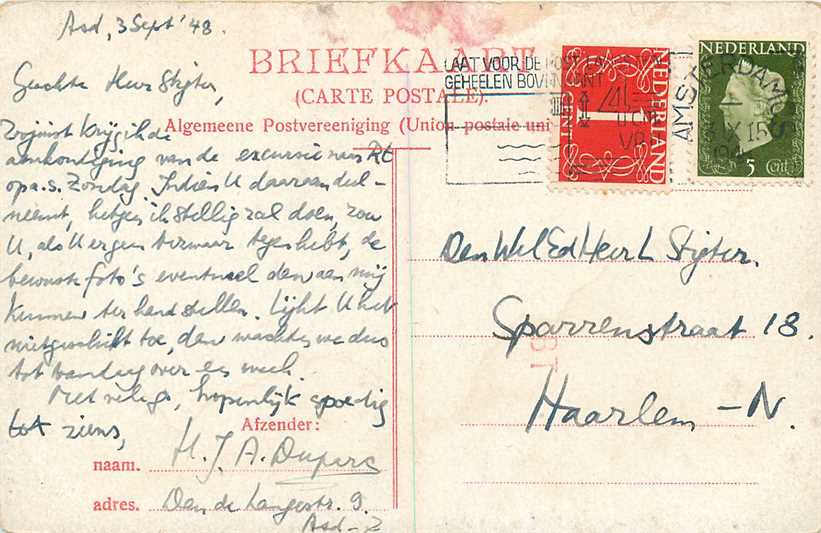 Asd, 3 Sept '48.
Geachte Heer Stijter,
Zojuist krijg ik de
aankondiging van de excursie naar
op a.s. Zondag. Indien U daaraan deel-
neemt, hetgeen ik stellig zal doen, zou
U, als U er geen bezwaar tegen hebt, de
bewuste foto's eventueel dan aan mij
kunnen ter hand stellen. Lijkt U het
niet geschikt toe, dan wachten we dus
tot Vandaag over een week.
Met , hopenlijk spoedig
tot ziens,
BRIEFKAART
(CARTE POSTALE).
Algemeene Postvereeniging (Union postale uni
Afzender:
naam. H. J. A. Duparc
adres. Van de Langestr. 9.
Asd-Z
LAAT VOOR DE POST
GEHEELEN BOVENKANT
1
CENT
NEDERLAND
NEDERLAND
5 Cent
AMSTERDAM
Den Wel Ed Heer L Stijter.
Sparrenstraat 18.
Haarlem - N.